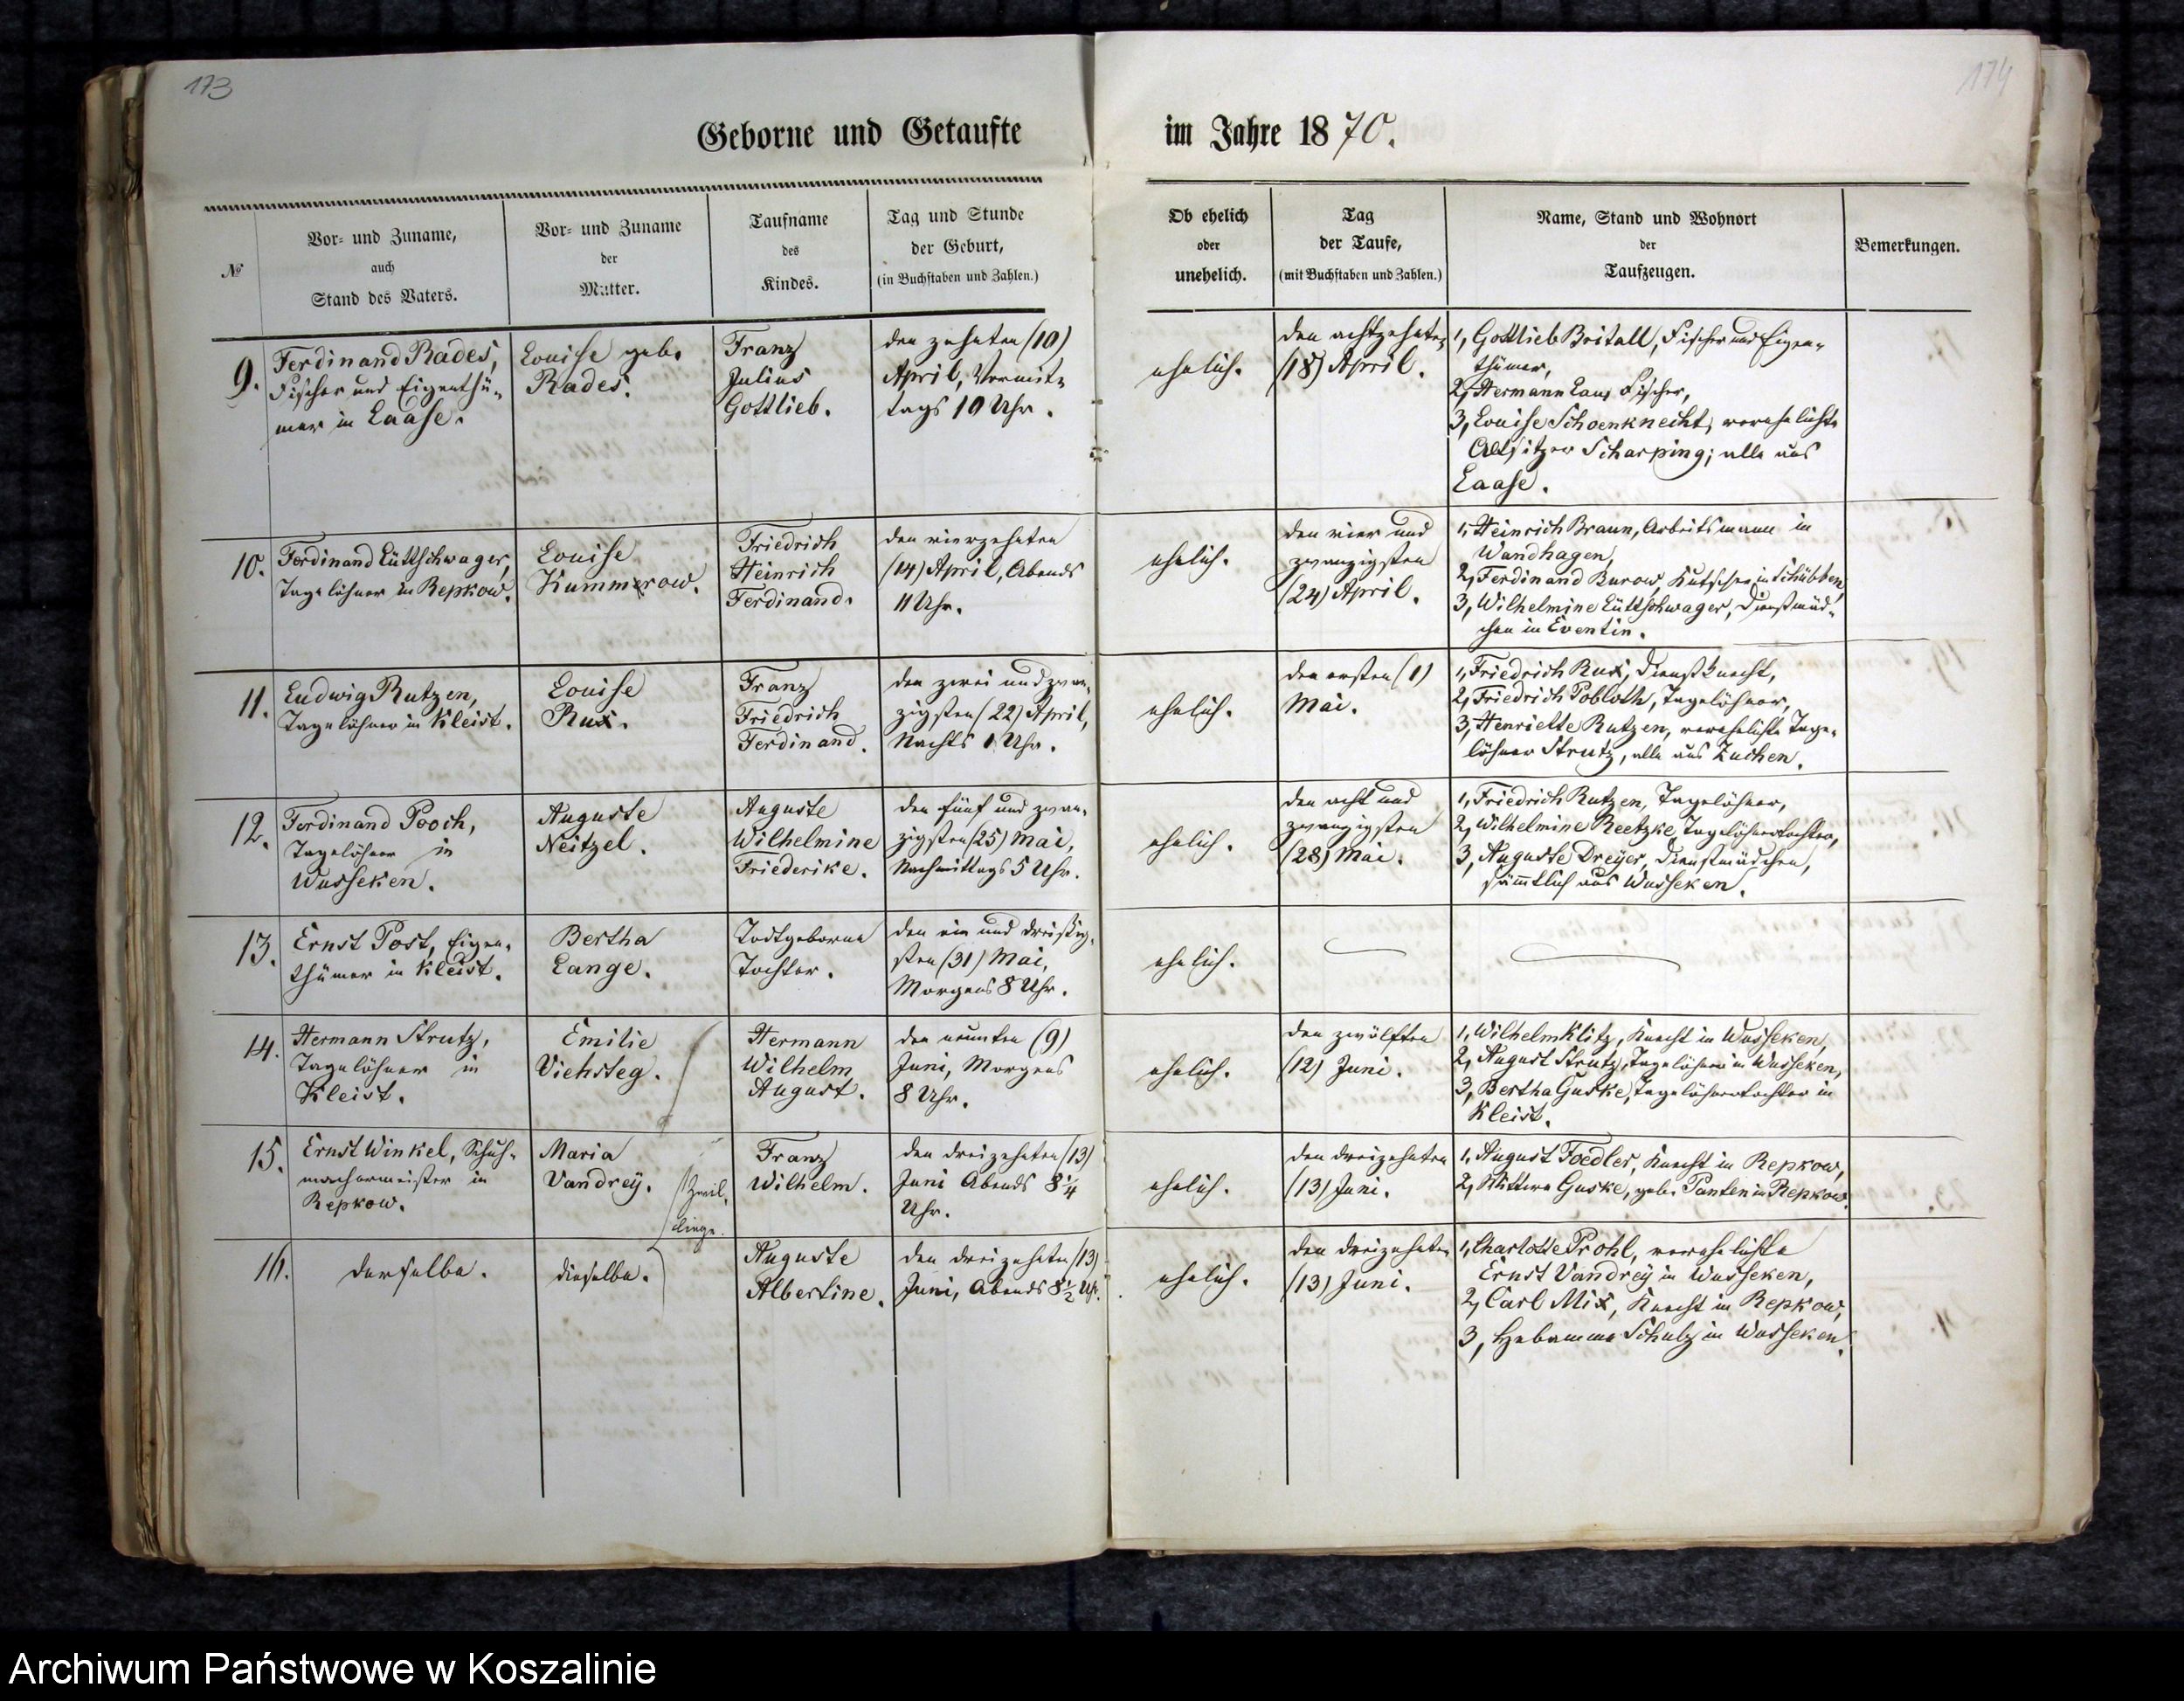 173
174
Geborne und Getaufte
im Jahre 1870.
№
Vor- und Zuname,
auch
Stand des Vaters.
Vor- und Zuname
der
Mutter.
Taufname
des
Kindes.
Tag und Stunde
der Geburt,
(in Buchstaben und Zahlen.)
Ob ehelich
oder
unehelich.
Tag
der Taufe,
(mit Buchstaben und Zahlen.)
Name, Stand und Wohnort
der
Taufzeugen.
Bemerkungen.
9.
Ferdinand Rades,
Fischer und Eigenthü-
mer in Laase.
Louise geb.
Rades.
Franz
Julius
Gottlieb.
den zehnten (10)
April, Vormit-
tags 10 Uhr.
ehelich.
den achtzehnten
(18) April.
1, Gottlieb Britall, Fischer und Eigen-
thümer,
2, Hermann Lau, Fischer,
3, Louise Schoenknecht, verehelichte
Altsitzer Scharping; alle aus
Laase.
10.
Ferdinand Lüttschwager,
Tagelöhner in Repkow.
Louise
Kummerow.
Friedrich
Heinrich
Ferdinand.
den vierzehnten
(14) April, Abends
11 Uhr.
ehelich.
den vier und
zwanzigsten
(24) April.
1, Heinrich Braun, Arbeitsmann in
Wandhagen,
2, Ferdinand Burow, Kutscher in Schübben,
3, Wilhelmine Lüttschwager, Dienstmäd-
chen in Eventin.
11.
Ludwig Rutzen,
Tagelöhner in Kleist.
Louise
Rux.
Franz
Friedrich
Ferdinand.
den zwei und zwan-
zigsten (22) April,
Nachts 1 Uhr.
ehelich.
den ersten (1)
Mai.
1, Friedrich Rux, Dienstknecht,
2, Friedrich Pobloth, Tagelöhner,
3, Henriette Rutzen, verehelichte Tage-
löhner Strutz, alle aus Zuchen.
12.
Ferdinand Pooch,
Tagelöhner in
Wusseken.
Auguste
Neitzel.
Auguste
Wilhelmine
Friederike.
den fünf und zwan-
zigsten (25) Mai,
Nachmittags 5 Uhr.
ehelich.
den acht und
zwanzigsten
(28) Mai.
1, Friedrich Rutzen, Tagelöhner,
2, Wilhelmine Reetzke, Tagelöhnertochter,
3, Auguste Dreyer, Dienstmädchen,
sämmtlich aus Wusseken.
13.
Ernst Post, Eigen-
thümer in Kleist.
Bertha
Lange.
Todtgeborne
Tochter.
den ein und dreißig-
sten (31) Mai,
Morgens 8 Uhr.
ehelich.
14.
Hermann Strutz,
Tagelöhner in
Kleist.
Emilie
Viehsteg.
Hermann
Wilhelm
August.
den neunten (9)
Juni, Morgens
8 Uhr.
ehelich.
den zwölften
(12) Juni.
1, Wilhelm Klitz, Knecht in Wusseken,
2, August Strutz, Tagelöhner in Wusseken,
3, Bertha Guske, Tagelöhnertochter in
Kleist.
15.
Ernst Winkel, Schuh-
machermeister in
Repkow.
Maria
Vandrey.
Zwil-
linge.
Franz
Wilhelm.
den dreizehnten (13)
Juni Abends 8 1/4
Uhr.
ehelich.
den dreizehnten
(13) Juni.
1, August Foedler, Knecht in Repkow,
2, Wittwe Guske, geb. Panten in Repkow.
16.
derselbe.
dieselbe.
Auguste
Albertine.
den dreizehnten (13)
Juni, Abends 8 1/2 Uhr.
ehelich.
den dreizehnten
(13) Juni.
1, Charlotte Prohl, verehelichte
Ernst Vandrey in Wusseken,
2, Carl Mix, Knecht in Repkow,
3, Hebamme Schulz in Wusseken.
Archiwum Państwowe w Koszalinie